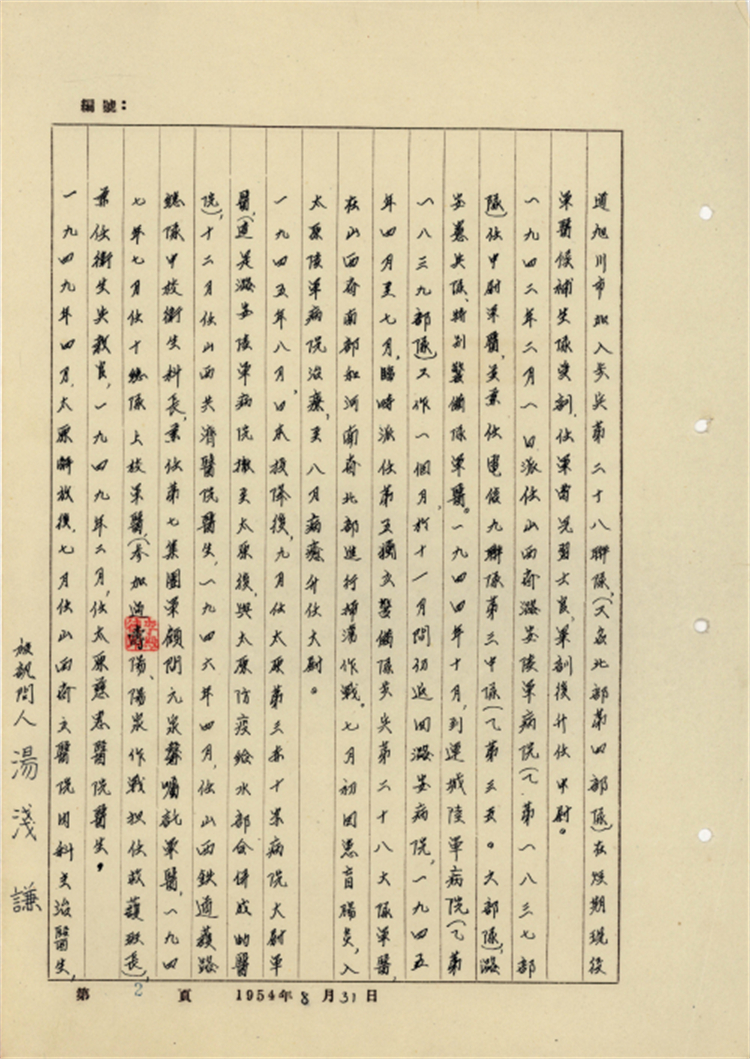 編號:
道旭川市加入步兵第二十八聯隊,(又名北部第四部隊)在短期現役
軍醫候補生隊受訓,任軍曹見習士官,軍訓後升任中尉。
一九四二年二月一日派任山西省潞安陸軍病院(乙第一八三七部
隊)任中尉軍醫,並兼任電信九聯隊第三中隊(乙第三五。六部隊),潞
安憲兵隊、特別警備隊軍醫。一九四四年十月,到運城陸軍病院(乙第
一八三九部隊)工作一個月,於十一月間仍返回潞安病院,一九四五
年四月至七月,臨時派任第五獨立警備隊步兵第二十八大隊軍醫,
在山西省南部和河南省北部進行掃蕩作戰。七月初因患盲腸炎,入
太原陸軍病院治療,至八月病癒升任大尉。
一九四五年八月,日本投降後,九月任太原第三十軍病院大尉軍
醫,(這是潞安陸軍病院撤至太原後,與太原防疫給水部合併成的醫
院),十二月任山西共濟醫院醫生,一九四六年四月,任山西鉄道護路
總隊中校衛生科長,兼任第七集團軍顧問元泉馨囑託軍醫,一九四
七年七月任十總隊上校軍醫,(參加過壽陽、陽泉作戰担任救護班長),
兼任衛生兵教官,一九四九年二月,任太原慈惠醫院醫生。
一九四九年四月,太原解放後,七月任山西省立醫院内科主治醫生,
被訊問人 湯淺 謙
第 2 頁 1954年8月31日